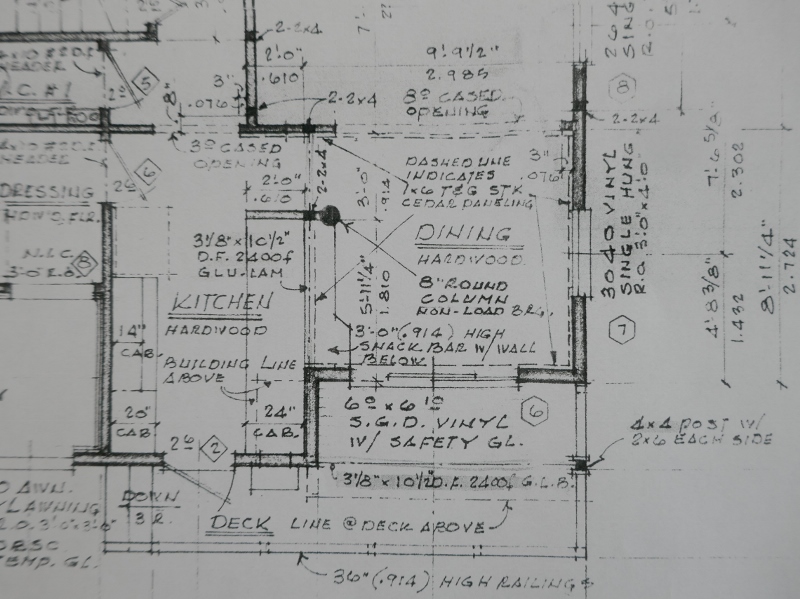 2-2x4
2'0"
.610
9'-9 1/2"
2.985
8⁰ CASED
OPENING
2-2x4
3"
.076
8"
HEADER
C. #1
5
2⁶
3⁰ CASED
OPENING
HEADER
6
2⁶
DRESSING
HDW'D. FLR.
N.I.C.
3'-0" R.O.
8
2'0"
.610
2-2x4
3'-0"
.914
DASHED LINE
INDICATES
1x6 T&G STK.
CEDAR PANELING
3"
.076
3 1/8" x 10 1/2"
D.F. 2400f
GLU-LAM
DINING
HARDWOOD
8" ROUND
COLUMN
NON-LOAD BRG.
5'-11 1/4"
1.810
KITCHEN
HARDWOOD
14"
CAB.
BUILDING LINE
ABOVE
3'-0" (.914) HIGH
SNACK BAR W/ WALL
BELOW
20"
CAB.
24"
CAB.
2⁶
2
6⁰ x 6¹⁰
S.G.D. VINYL
W/ SAFETY GL.
6
3 1/8" x 10 1/2" D.F. 2400f G.L.B.
4x4 POST W/
2x6 EACH SIDE
DOWN
3 R.
DECK LINE @ DECK ABOVE
36" (.914) HIGH RAILINGS
AWN.
AWNING
R.O. 3'-0"x3'-0"
TEMP. GL.
SING
R.O.
8
2-2x4
3040 VINYL
SINGLE HUNG
R.O. 3'-0"x4'-0"
7
7'-6 5/8"
2.302
4'-8 3/8"
1.432
8'-11 1/4"
2.724